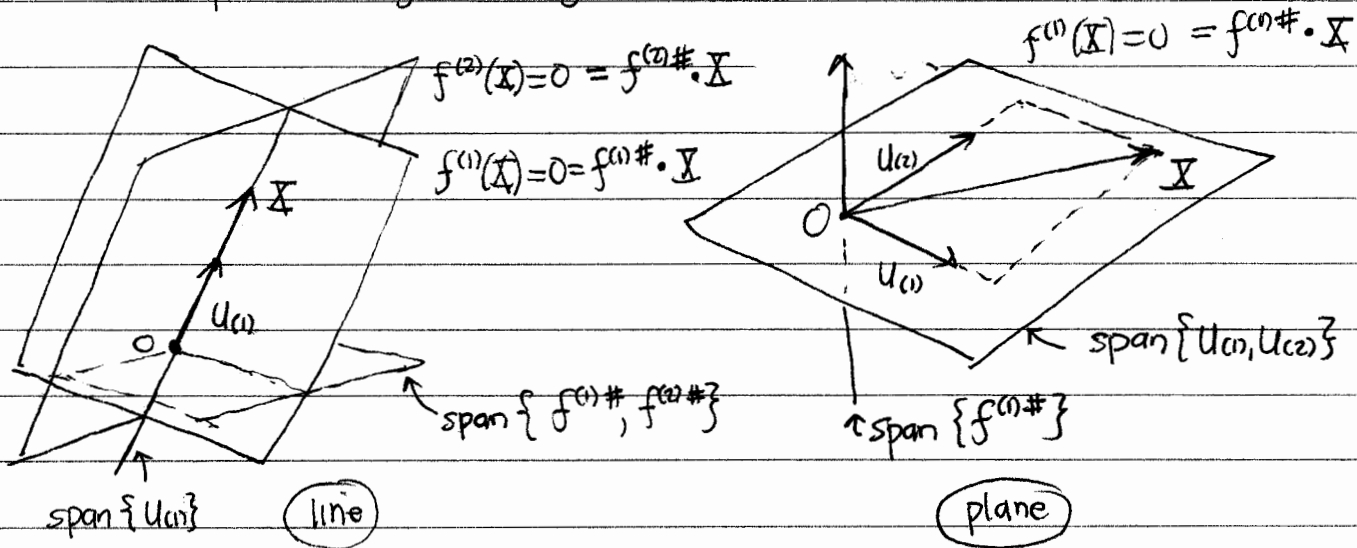 f⁽²⁾(X)=0 = f⁽²⁾# · X
f⁽¹⁾(X)=0=f⁽¹⁾# · X
X
U₍₁₎
O
span{f⁽¹⁾#, f⁽²⁾#}
span{U₍₁₎}
line
f⁽¹⁾(X)=0 = f⁽¹⁾# · X
U₍₂₎
X
O
U₍₁₎
span{U₍₁₎,U₍₂₎}
span{f⁽¹⁾#}
plane